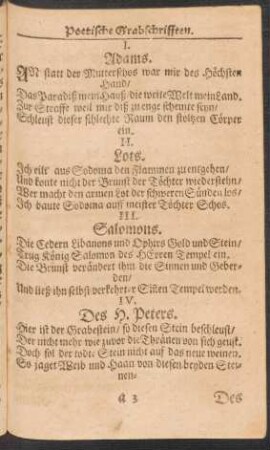 Poetische Grabschrifften.
I.
Adams.
AN statt der Mutterschos war mir des Höchsten
Hand/
Das Paradiß mein Hauß/ die weite Welt mein Land.
Zur Straffe weil mir diß zu enge scheinte seyn/
Schleust dieser schlechte Raum den stoltzen Cörper
ein.
II.
Lots.
Ich eilt' aus Sodoma den Flammen zu entgehen/
Und konte nicht der Brunst der Töchter wiederstehn/
Wer macht den armen Lot der schweren Sünden los/
Ich baute Sodoma auff meister Töchter Schos.
III.
Salomons.
Die Cedern Libanons und Ophirs Gold und Stein/
Trug König Salomon des HErren Tempel ein.
Die Brunst verändert ihm die Sinnen und Geber-
den/
Und ließ ihn selbst verkehrter Götzen Tempel werden.
IV.
Des H. Peters.
Hier ist der Grabestein/ so diesen Stein beschleust/
Der nicht mehr wie zuvor die Thränen von sich geust.
Doch sol der todte Stein nicht auf das neue weinen.
So jaget Weib und Haan von diesen beyden Stei-
nen.
A 3
Des